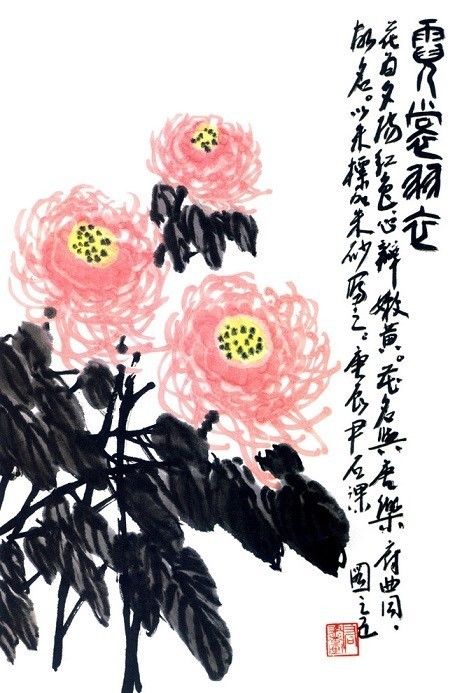 霓裳羽衣
花白夕阳红色心瓣嫩黄。花名与音乐府曲同，
故名。以朱磦的朱砂写之。庚辰尹石谋
图之五